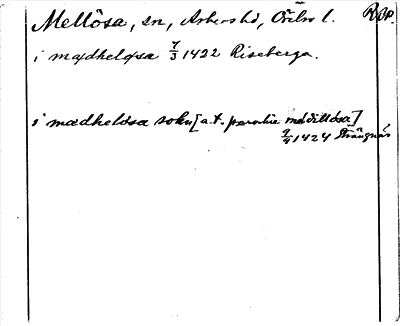 Mellösa, sn, Askers hd, Örebro l. RAp.
i mædheløsa 7/3 1422 Riseberga.
i mædheløsa sokn [a.t. parochie mædilløsa]
9/4 1424 Strängnäs